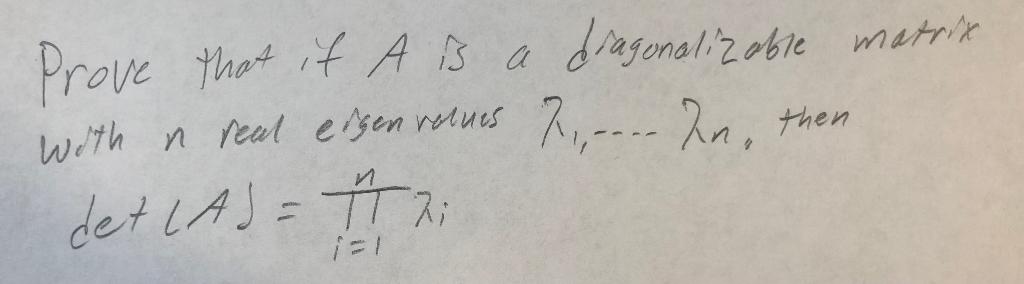 Prove that if A is a diagonalizable matrix
with n real eigenvalues λ₁,---- λn, then
det(A) = ∏ᵢ₌₁ⁿ λᵢ